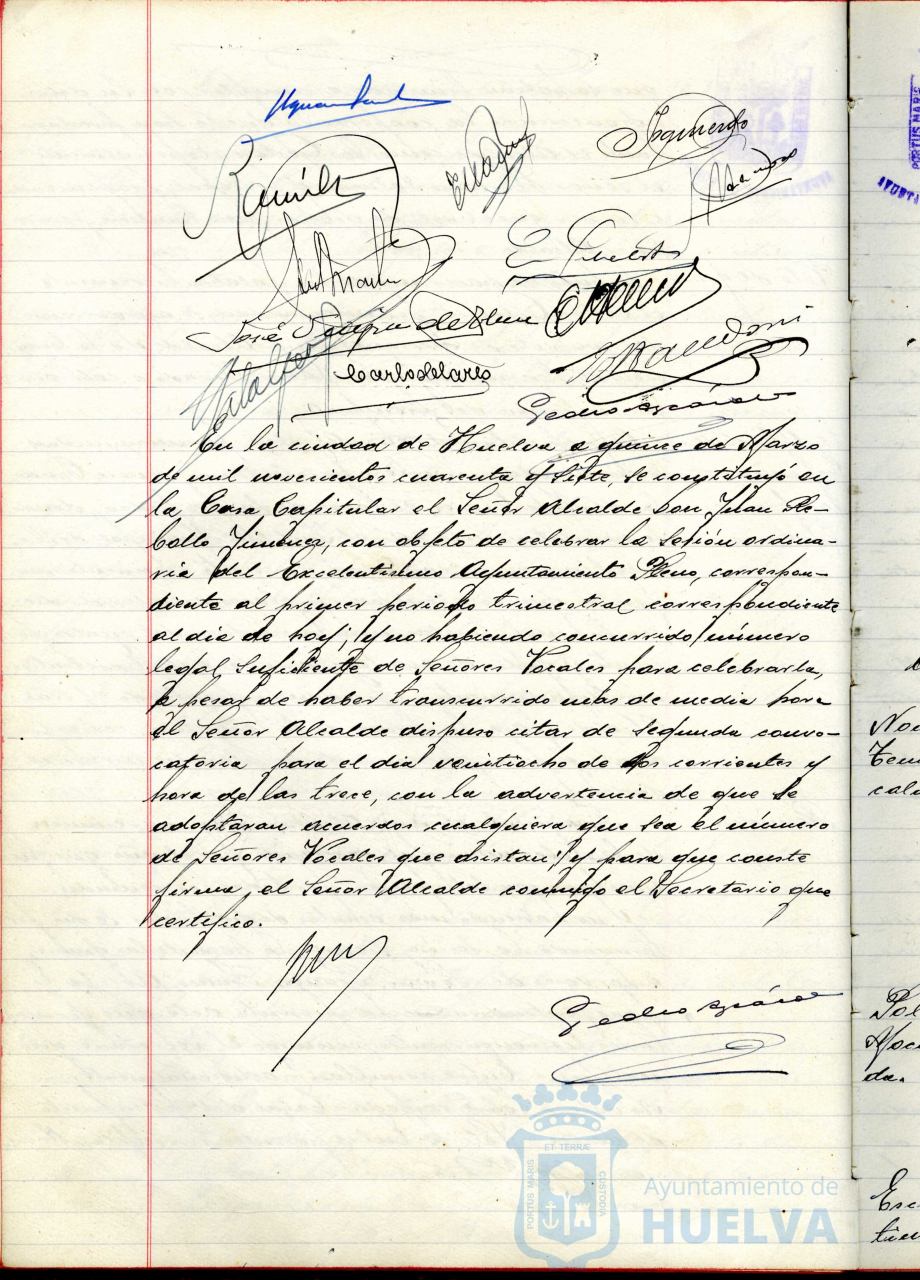 Ramírez
Izquierdo
José
Carlos de
Pedro
En la ciudad de Huelva a quince de Marzo
de mil novecientos cuarenta y siete, se constituyó en
la Casa Capitular el Señor Alcalde Don Juan Re-
bollo Jiménez, con objeto de celebrar la sesión ordina-
ria del Excelentísimo Ayuntamiento Pleno, correspon-
diente al primer periodo trimestral correspondiente
al día de hoy; y no habiendo concurrido número
legal suficiente de Señores Vocales para celebrarla,
a pesar de haber transcurrido más de media hora
el Señor Alcalde dispuso citar de segunda convo-
catoria para el día veintiocho de los corrientes y
hora de las trece, con la advertencia de que se
adoptaran acuerdos cualquiera que sea el número
de Señores Vocales que asistan; y para que conste
firma, el Señor Alcalde conmigo el Secretario que
certifico.
Pedro
PORTUS MARIS
ET TERRÆ
CUSTODIA
Ayuntamiento de
HUELVA
PORTUS MARIS